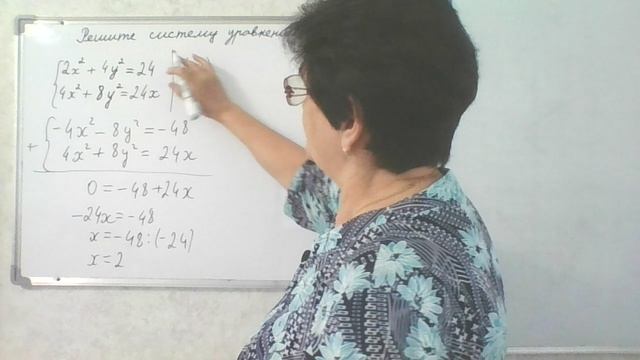 Решите систему уравнени
{2x² + 4y² = 24
{4x² + 8y² = 24x
+ {-4x² - 8y² = -48
{4x² + 8y² = 24x
0 = -48 + 24x
-24x = -48
x = -48 : (-24)
x = 2